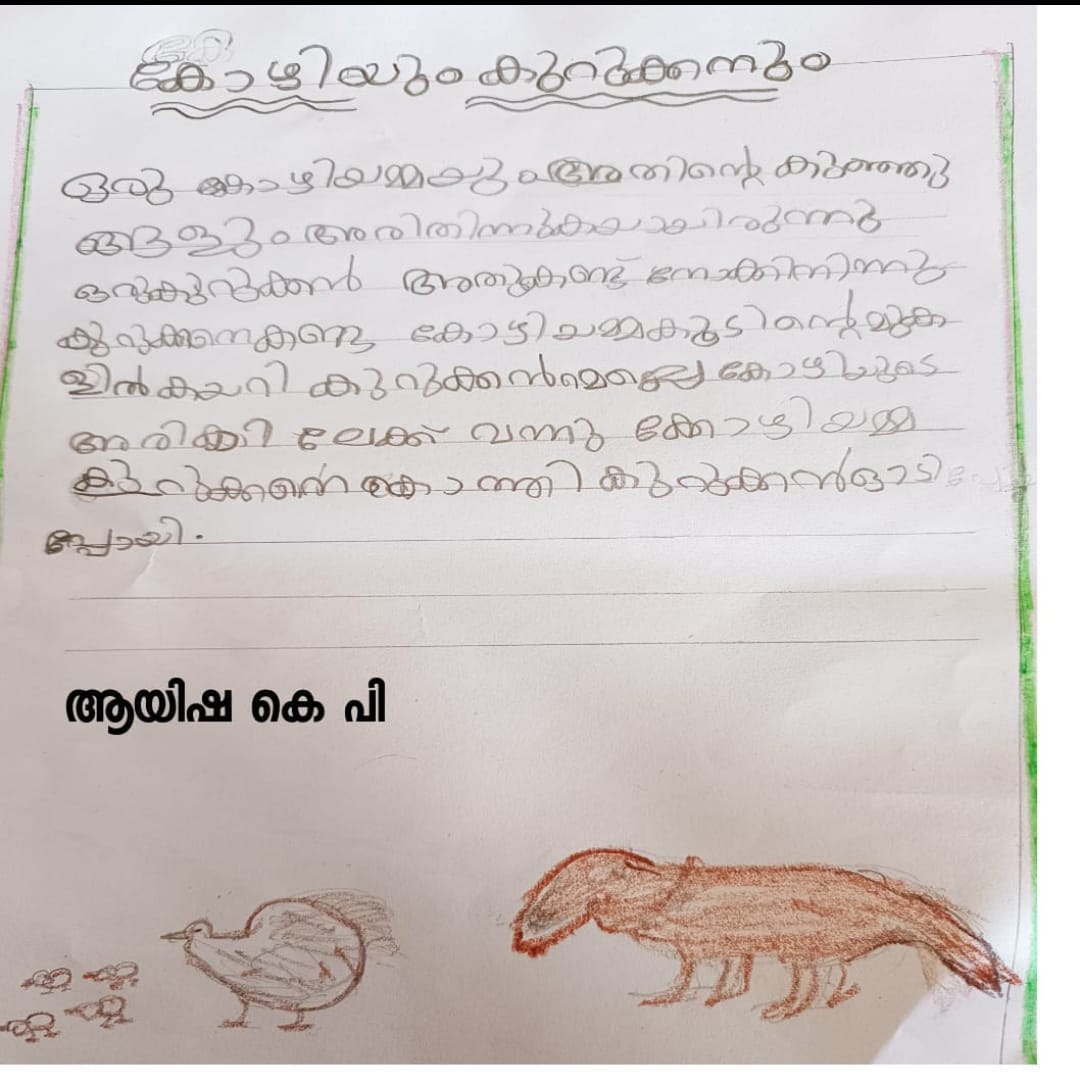 കോഴിയും കുറുക്കനും
ഒരു കോഴിയമ്മയും അതിന്റെ കുഞ്ഞു
ങ്ങളും അരിതിന്നുകയായിരുന്നു
ഒരുകുറുക്കൻ അതുകണ്ട് നോക്കിനിന്നു
കുറുക്കനെകണ്ടു കോഴിയമ്മകൂടിന്റെമുക
ളിൽകയറി കുറുക്കൻമെല്ലെ കോഴിയുടെ
അരികിലേക്ക് വന്നു കോഴിയമ്മ
കുറുക്കനെകൊത്തി കുറുക്കൻഓടി
പ്പോയി.
ആയിഷ കെ പി